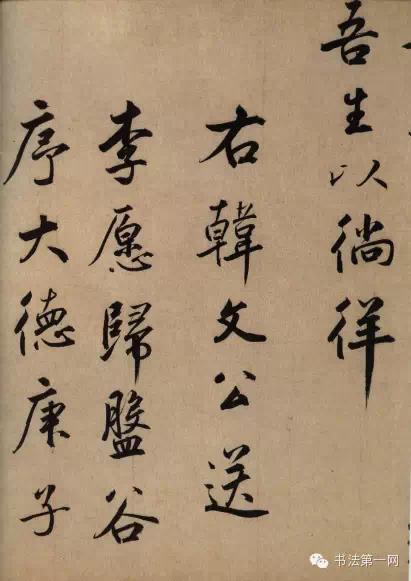 吾生以徜徉
右韓文公送
李愿歸盤谷
序大德庚子
书法第一网